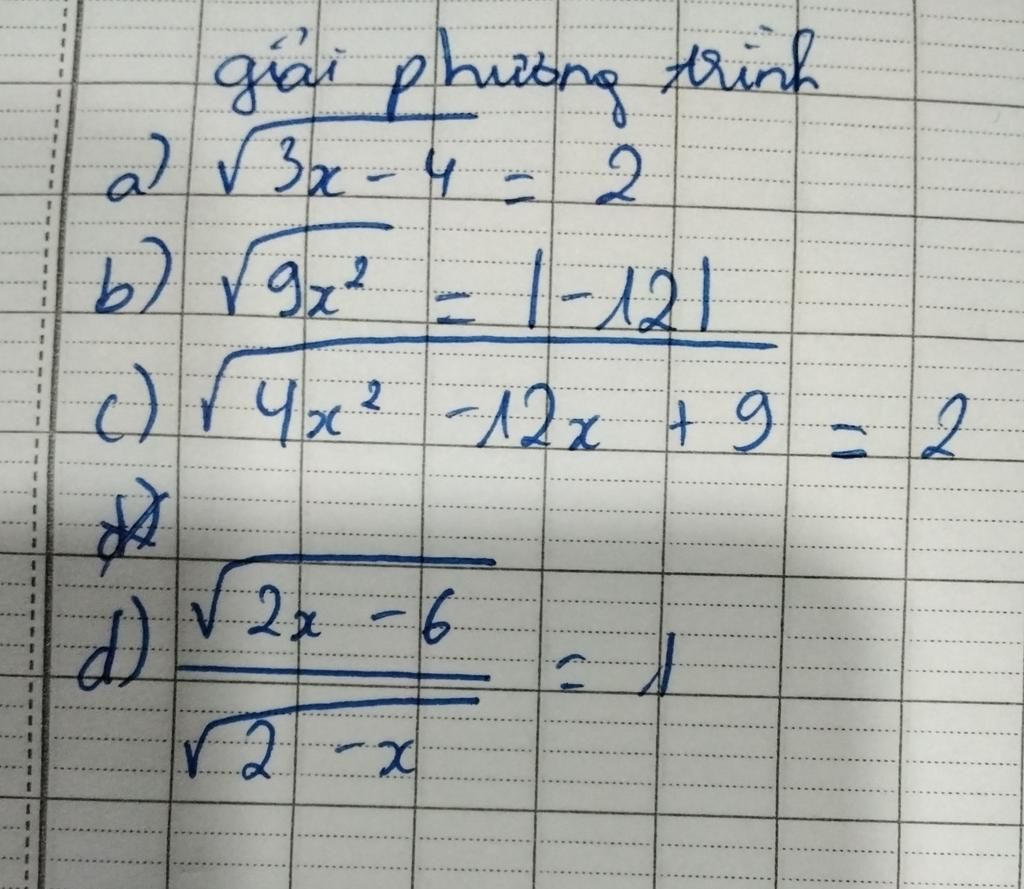 giải phương trình
a) √(3x - 4) = 2
b) √(9x²) = |-12|
c) √(4x² - 12x + 9) = 2
d) √(2x - 6) / √(2 - x) = 1